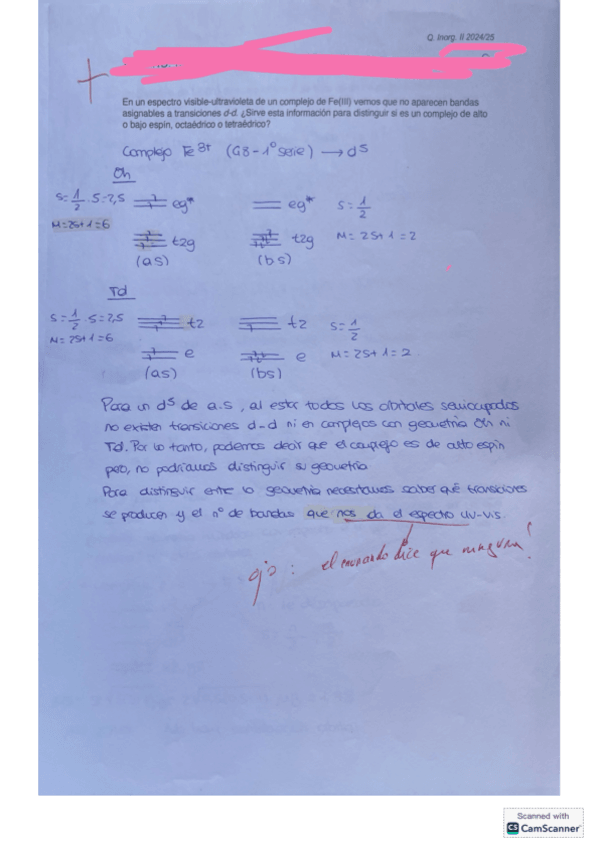 Q. Inorg. II 2024/25
En un espectro visible-ultravioleta de un complejo de Fe(III) vemos que no aparecen bandas
asignables a transiciones d-d. ¿Sirve esta información para distinguir si es un complejo de alto
o bajo espín, octaédrico o tetraédrico?
Complejo Fe3+ (G8-1º serie) → d5
Oh
S=1/2·5=2,5 eg* eg* S=1/2
M=2S+1=6 t2g t2g M=2S+1=2
(as) (bs)
Td
S=1/2·5=2,5 t2 t2 S=1/2
M=2S+1=6 e e M=2S+1=2
(as) (bs)
Para un d5 de a.s, al estar todos los orbitales semiocupados
no existen transiciones d-d ni en complejos con geometría Oh ni
Td. Por lo tanto, podemos decir que el complejo es de alto espín
pero, no podríamos distinguir su geometría.
Para distinguir entre la geometría necesitamos saber qué transiciones
se producen y el nº de bandas que nos da el espectro UV-vis.
: el enunciado dice que ninguna!
Scanned with
CS CamScanner